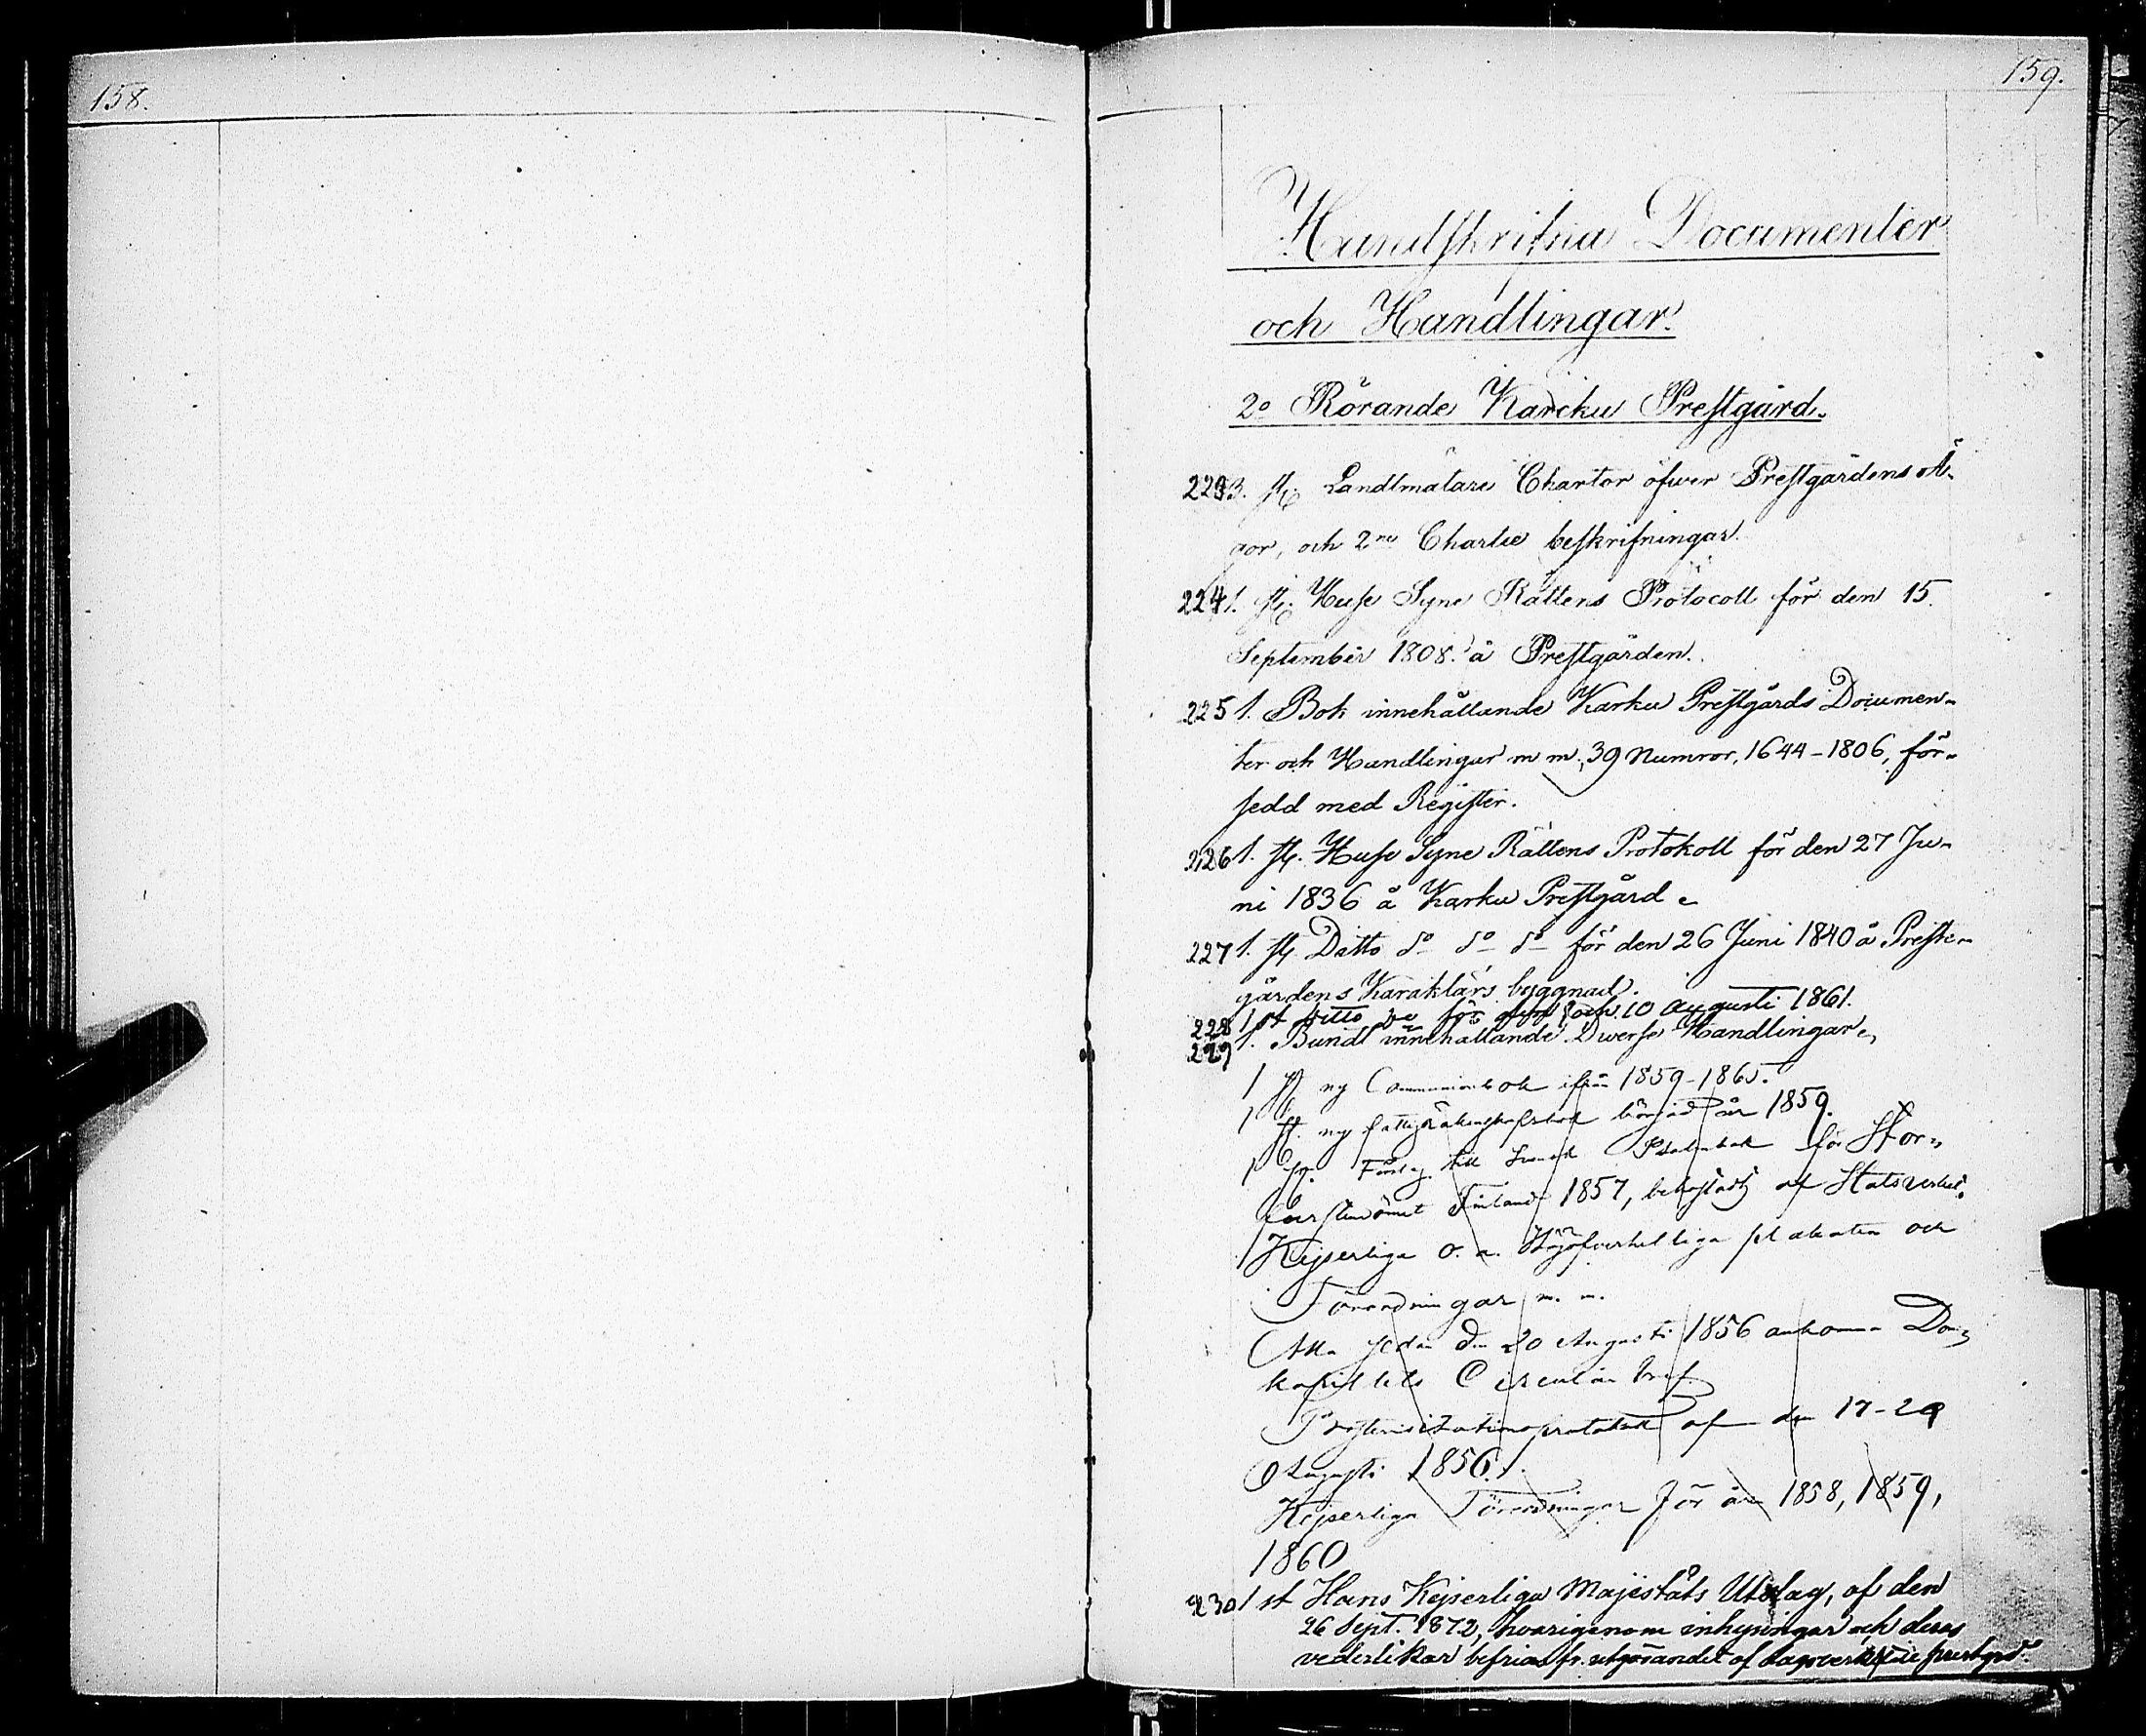 158.
159.
Handskrifna Documenter
och Handlingar.
2o Rörande Karcku Prestgård.
223 3. st. Landtmätare Chartor öfwer Prestgårdens Ä-
gor, och 2ne Charte beskrifningar.
224 1. st. Huse Syne Rättens Protocoll för den 15.
September 1808. å Prestgården.
225 1. Bok innehållande Karku Prestgårds Documen-
ter och Handlingar m m, 39 Numror, 1644-1806, för-
sedd med Register.
226 1. st. Huse Syne Rättens Protokoll för den 27 Ju-
ni 1836 å Karku Prestgård.
227 1. st. Ditto do do do för den 26 Juni 1840 å Preste-
gårdens Karaktärs byggnad.
228 1 st ditto för den och 10 augusti 1861.
229 1. Bundt innehållande Diverse Handlingar.
1 st ny Communionbok ifrån 1859-1865.
1 st. ny fattigräkenskapsbok börjad år 1859.
1 st. Förslag till Svensk Psalmbok för Stor-
furstendömet Finland 1857, bekostadt af Statsverket.
Kejserliga o. a. Högöfverhetliga plakater och
Förordningar m. m.
Alla sedan den 20 Augusti 1856 ankomna Dom-
kapitlets Circulär bref.
Prostvisitationsprotokoll af den 17-20
Augusti 1856.
Kejserliga Förordningar för åren 1858, 1859,
1860
230 1 st Hans Kejserliga Majestäts Utslag, af den
26 Sept. 1872, hvarigenom inhysingar och deras
vederlikar befrias fr. utgörandet af dagsverken i prestgrd.